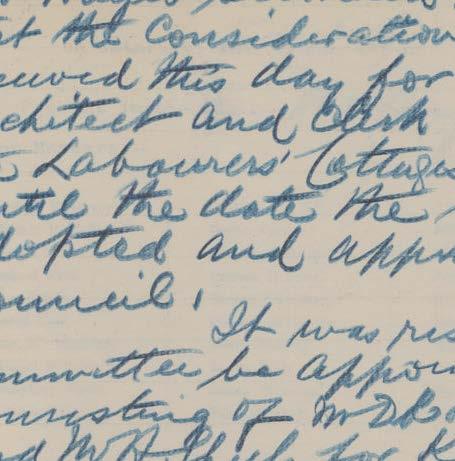 at the Consideration
ceived this day for
chitect and Clerk
Labourers' Cottages
ntil the date the
dopted and appr
ouncil.
It was res
ommittee be appoin
onsisting of Mr D. Ro
nd Mr H. for K